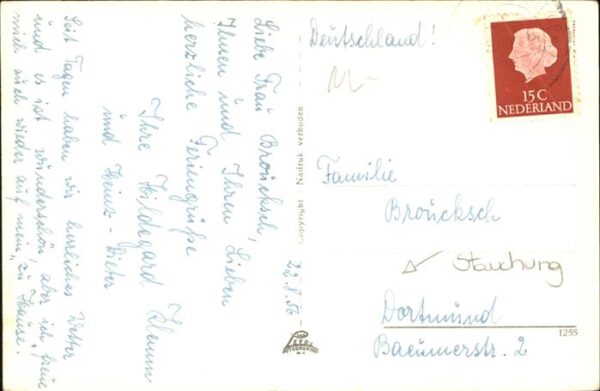 22.8.56
Liebe Frau Broucksch,
Ihnen und Ihren Lieben
herzliche Feriengrüße
Ihre Hildegard
und Heinz-Dieter
Seit Tagen haben wir herrliches Wetter
und es ist wunderschön, aber ich "freue"
mich auch wieder auf mein "zu Hause".
Copyright Nadruk verboden
Deutschland!
15 C
NEDERLAND
Familie
Broucksch
Stauchung
Dortmund
Baeumerstr. 2
1255